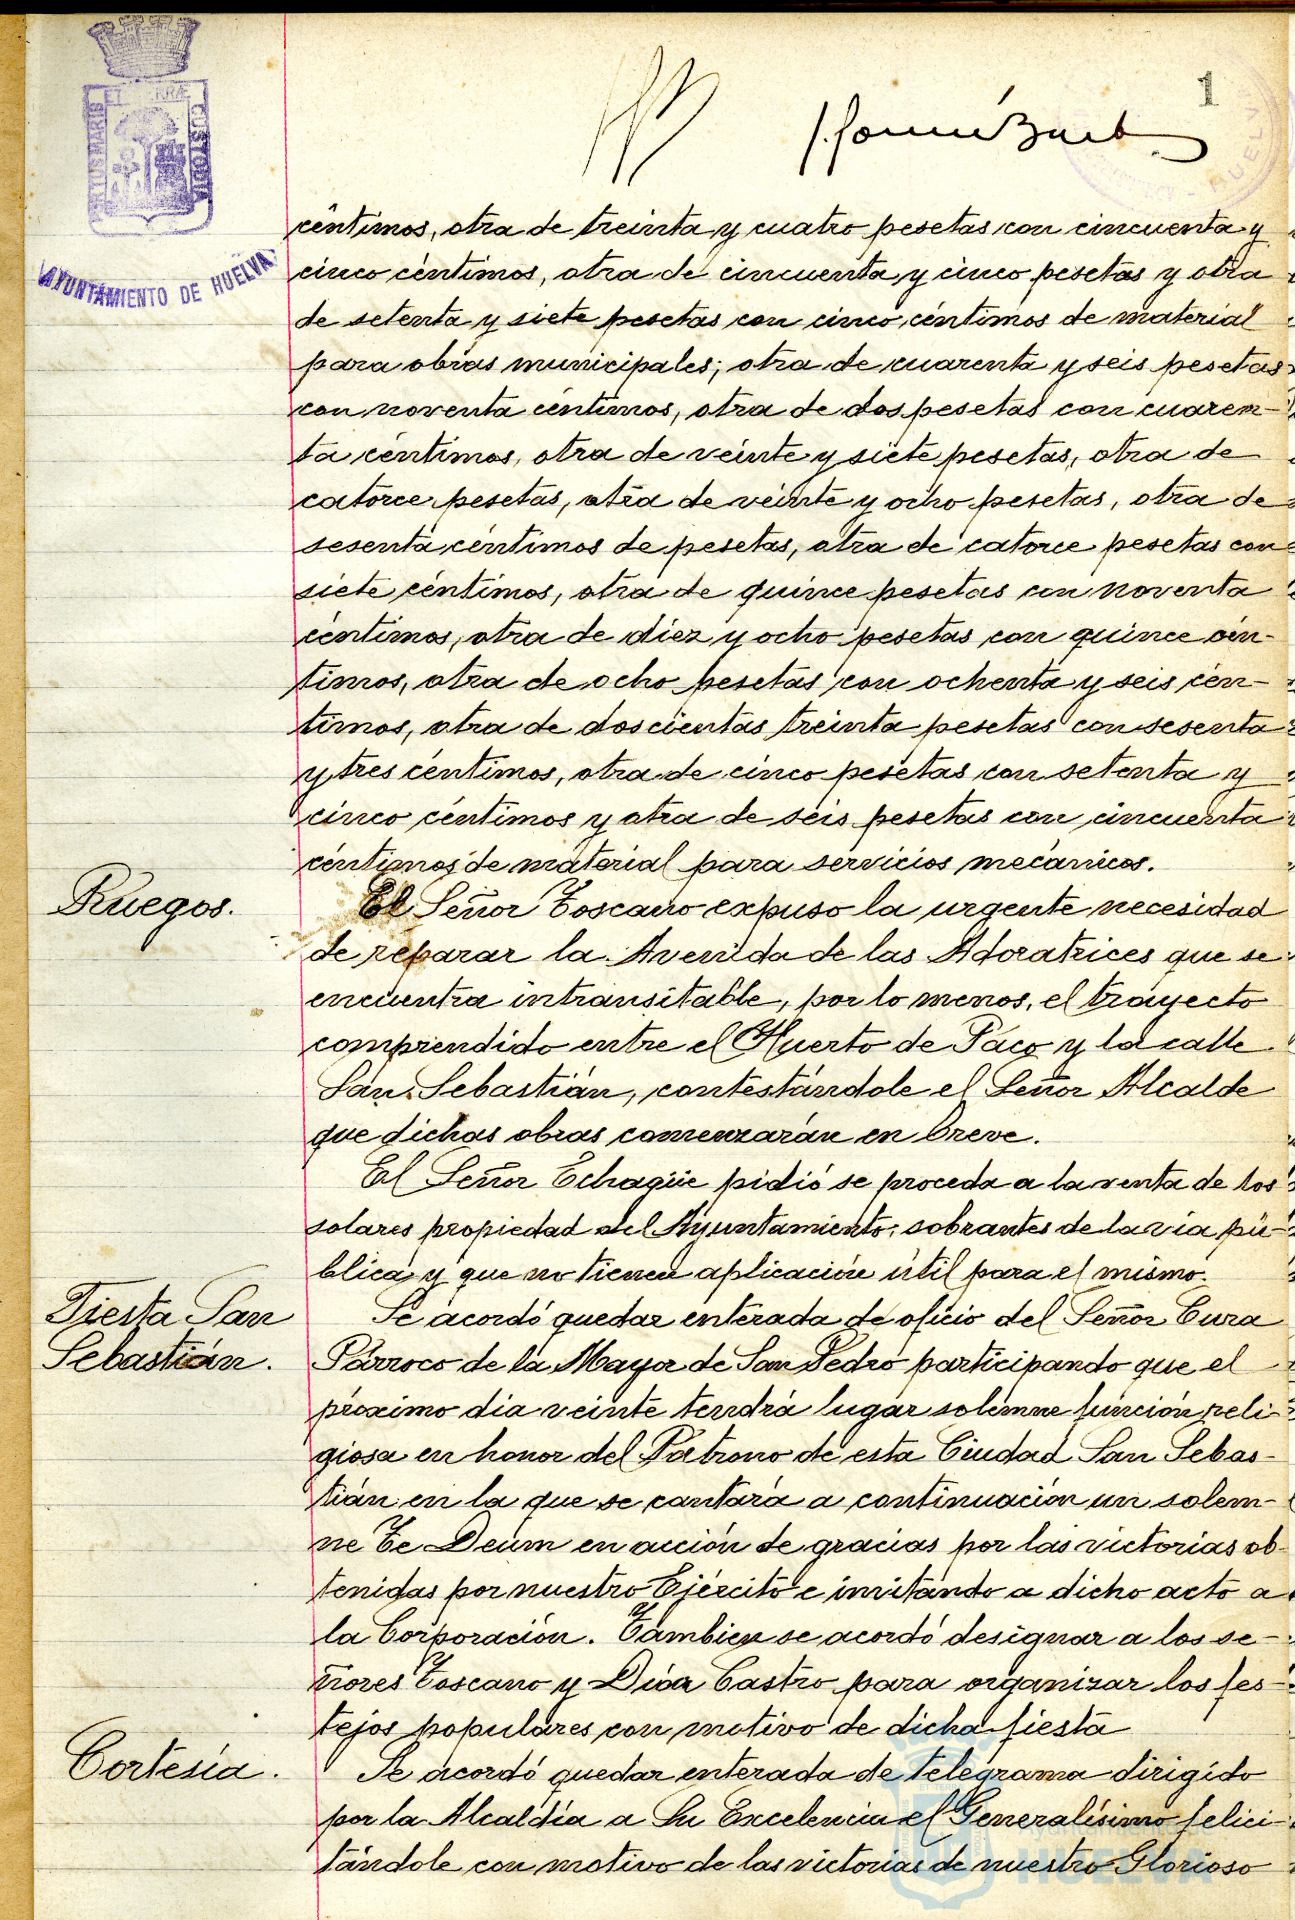 1
PORTUS MARIS ET TERRÆ CUSTODIA
AYUNTAMIENTO DE HUELVA
HUELVA
céntimos, otra de treinta y cuatro pesetas con cincuenta y
cinco céntimos, otra de cincuenta y cinco pesetas y otra
de setenta y siete pesetas con cinco céntimos de material
para obras municipales; otra de cuarenta y seis pesetas
con noventa céntimos, otra de dos pesetas con cuaren-
ta céntimos, otra de veinte y siete pesetas, otra de
catorce pesetas, otra de veinte y ocho pesetas, otra de
sesenta céntimos de pesetas, otra de catorce pesetas con
siete céntimos, otra de quince pesetas con noventa
céntimos, otra de diez y ocho pesetas con quince cén-
timos, otra de ocho pesetas con ochenta y seis cén-
timos, otra de doscientas treinta pesetas con sesenta
y tres céntimos, otra de cinco pesetas con setenta y
cinco céntimos y otra de seis pesetas con cincuenta
céntimos de material para servicios mecánicos.
Ruegos.
El Señor Toscano expuso la urgente necesidad
de reparar la Avenida de las Adoratrices que se
encuentra intransitable, por lo menos, el trayecto
comprendido entre el Huerto de Paco y la calle
San Sebastián, contestándole el Señor Alcalde
que dichas obras comenzarán en breve.
El Señor Echagüe pidió se proceda a la venta de los
solares propiedad del Ayuntamiento, sobrantes de la vía pú-
blica y que no tienen aplicación útil para el mismo.
Fiesta San
Sebastián.
Se acordó quedar enterada de oficio del Señor Cura
Párroco de la Mayor de San Pedro participando que el
próximo dia veinte tendrá lugar solemne función reli-
giosa en honor del Patrono de esta Ciudad San Sebas-
tián en la que se cantará a continuación un solem-
ne Te Deum en acción de gracias por las victorias ob-
tenidas por nuestro Ejército e invitando a dicho acto a
la Corporación. Tambien se acordó designar a los se-
ñores Toscano y Díaz Castro para organizar los fes-
tejos populares con motivo de dicha fiesta
Cortesía.
Se acordó quedar enterada de telegrama dirigido
por la Alcaldía a Su Excelencia el Generalísimo felici-
tándole con motivo de las victorias de nuestro Glorioso
Ayuntamiento de
HUELVA